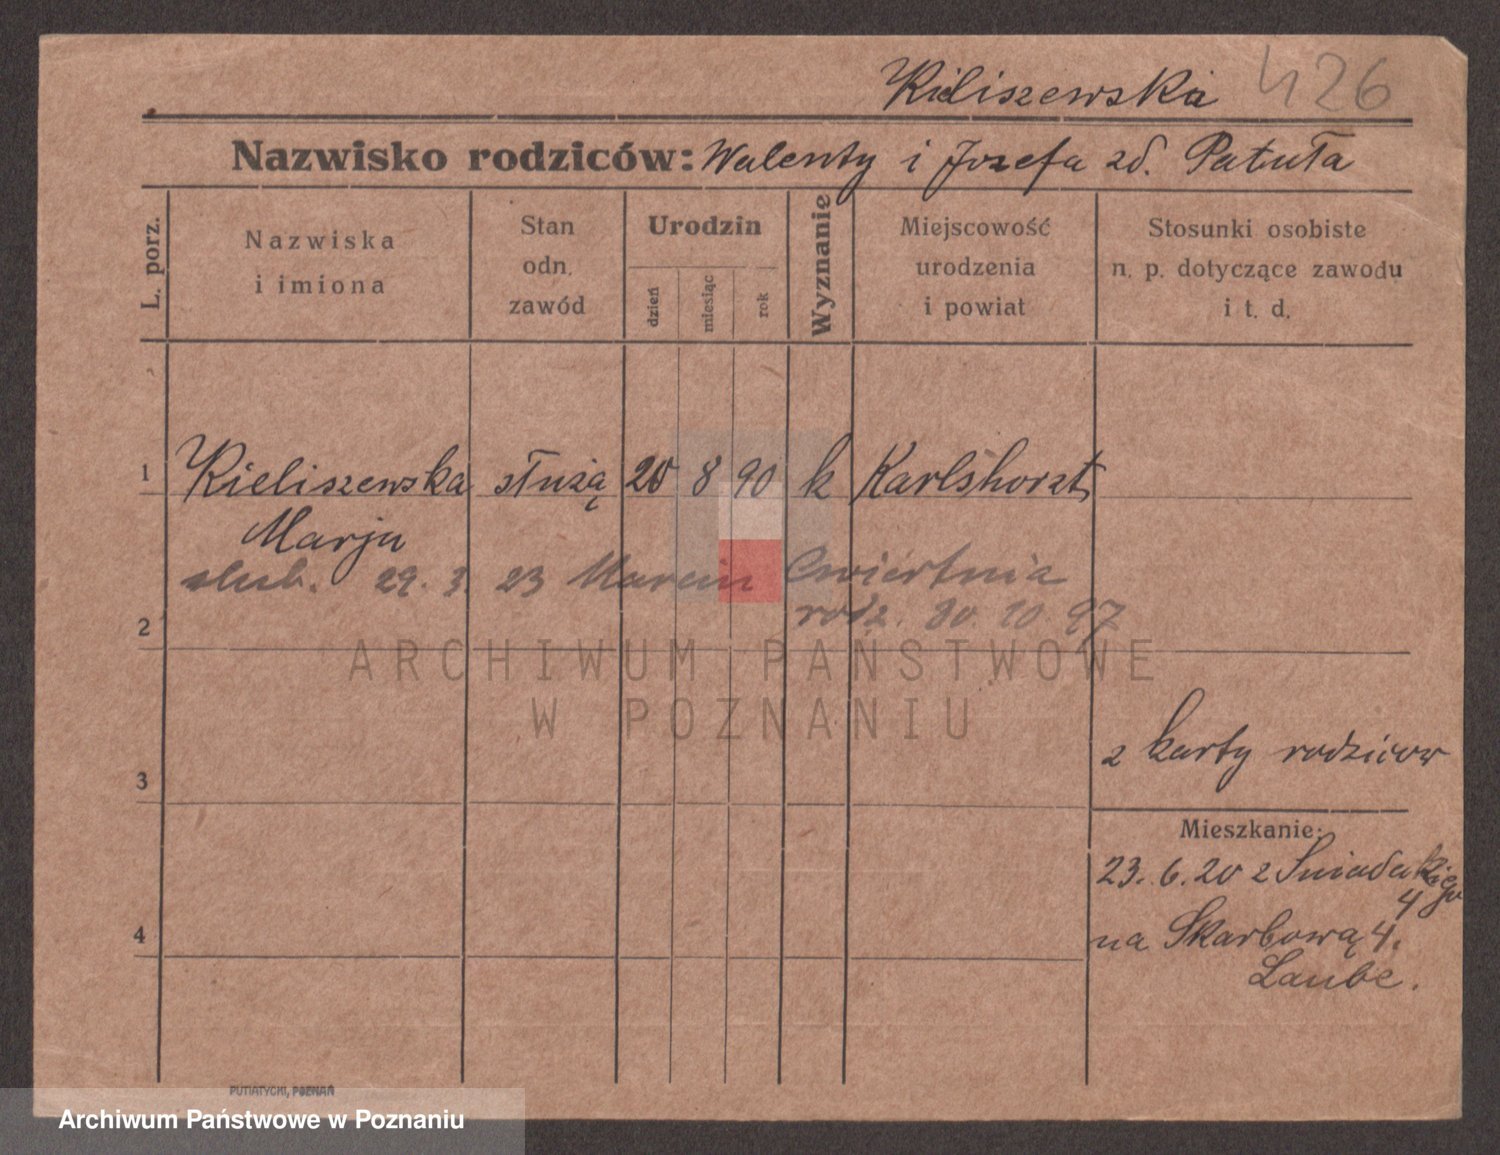 Kieliszewska 426
Nazwisko rodziców: Walenty i Jozefa zd. Patuła
L. porz.
Nazwiska
i imiona
Stan
odn.
zawód
Urodzin
dzień
miesiąc
rok
Wyznanie
Miejscowość
urodzenia
i powiat
Stosunki osobiste
n. p. dotyczące zawodu
i t. d.
1 Kieliszewska służą 20 8 90 k Karlshorzt
Marja
slub. 29. 3. 23 Marcin Cwiertnia
rodz. 10 97
2
ARCHIWUM PAŃSTWOWE
W POZNANIU
z karty rodzicow
3
Mieszkanie:
23. 6. 20 z Sniadeckiego
4
na Skarbową 4.
4
Laube.
PUTIATYCKI, POZNAŃ
Archiwum Państwowe w Poznaniu